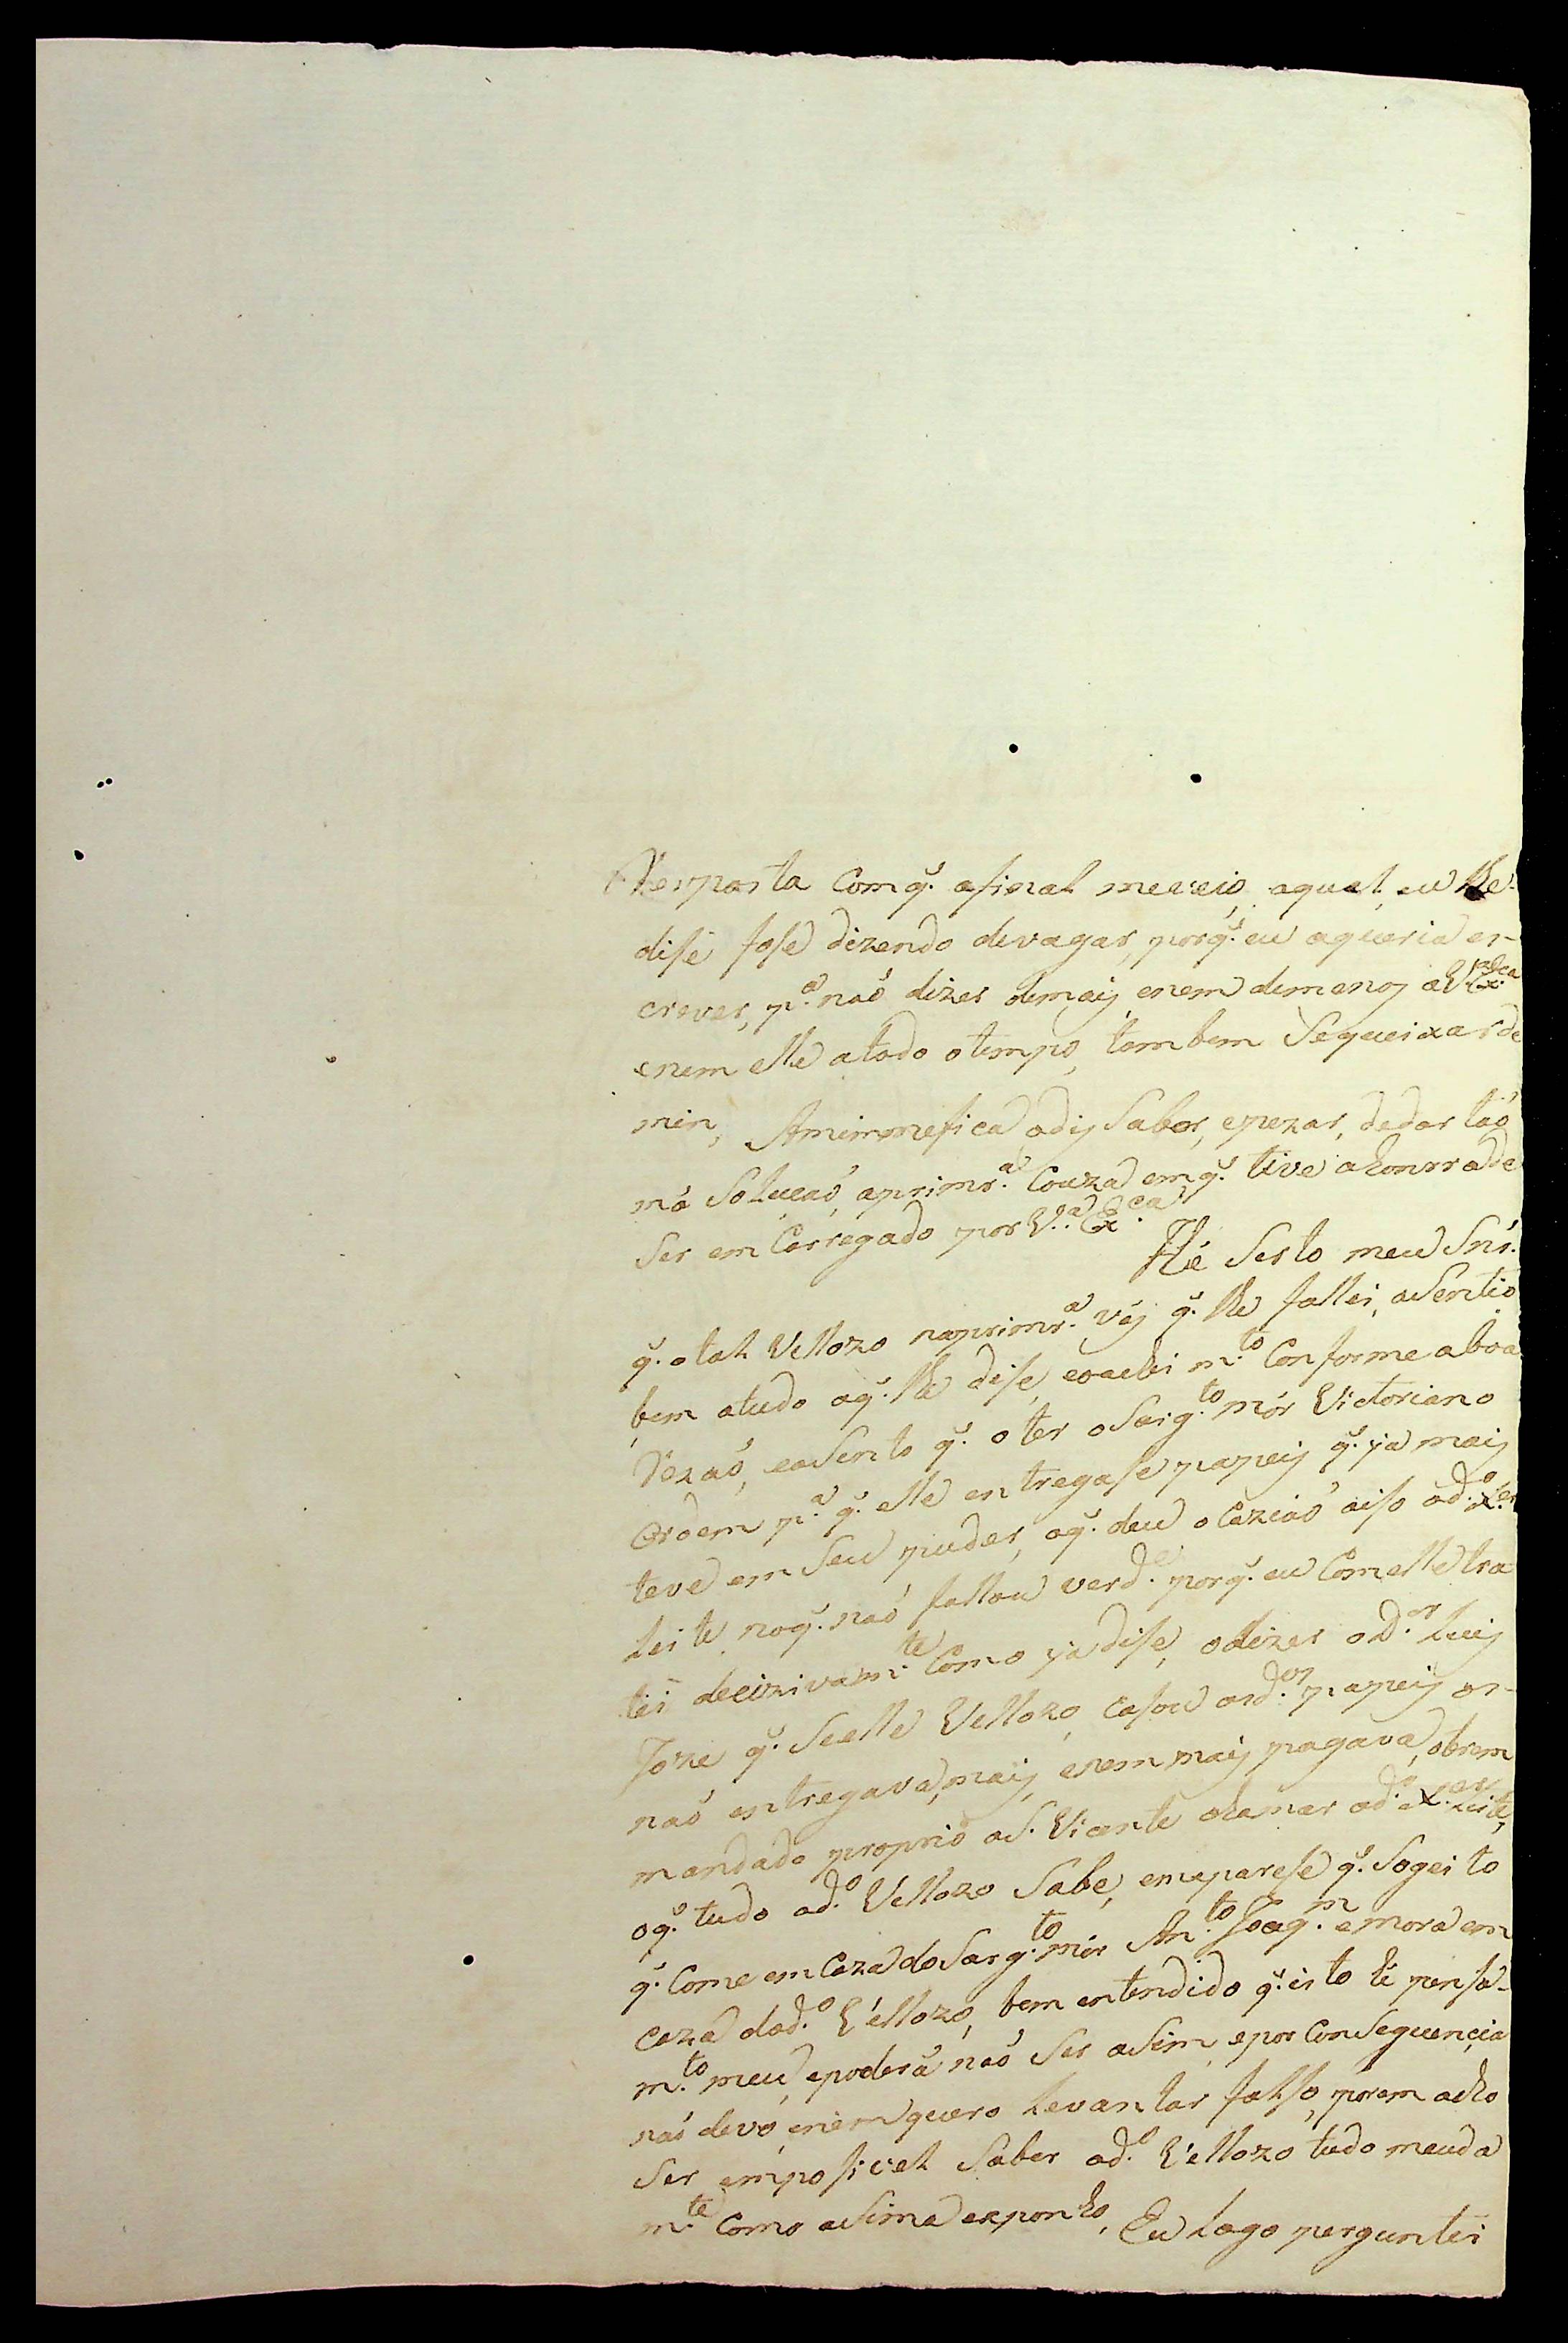 Resposta Comq̃. afinal meveio, aqual eu lhe
dise fose dizendo devagar, porq̃. eu aqueria es-
crever, p.ª naõ dizer demais, enem demenos aV.ª Ex.ca
enem elle atodo otempo, tembem Sequeixar de
min, Amimmefica odis Sabor, epezar, dedar taõ
má Soluçaõ, aprimr.ª Couza emq̃. tive ahonrra de
Ser em Carregado por V.ª Ex.ca
Hé Serto meu Snr̃.
q̃. otal Vellozo naprimr.ª vez q̃. lhe fallei, aSentio
bem atudo oq̃. lhe dise, eoachei m.to Conforme aboa
Rezaõ, eaSento q̃. o ter oSarg.to mór Victoriano
Ordem p.ª q̃. elle entregase papeis q̃. ja mais
teve em Seu puder, oq̃. deu ocaziaõ aiso od.o
Leite noq̃. naõ fallou verd.e porq̃. eu Comelle tra
tei decizivam.te Como ja dise, odizer oD.or Luis
Joze q̃. Seelle Vellozo, casou osd.os papeis os
naõ entregava mais, enem mais pagava, otrem
mandado proprio aS. Vicente chamar od.o Leite,
oq̃. tudo od.o Vellozo Sabe, emeparese q̃. Sogeito
q̃. Come em Caza do Sarg.to mór An.to Joaq.m emora em
caza dod.o Vellozo, bem entendido q̃. isto hé pensa-
m.to meu, epoderá naõ Ser aSim, epor ConSequencia
naõ devo, enem quero Levantar falso, porem acho
Ser emposivel Saber od.o Vellozo tudo meuda
m.te Como aSima exponho, Eu Logo perguntei